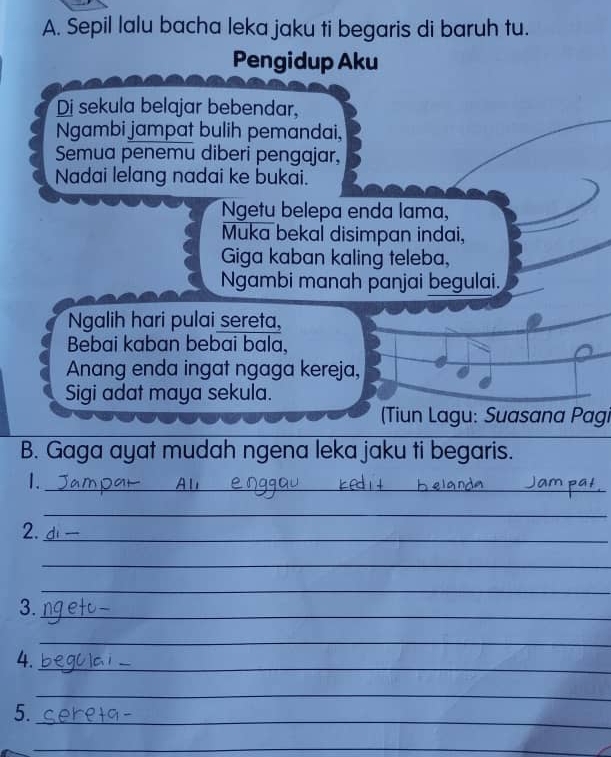 A. Sepil lalu bacha leka jaku ti begaris di baruh tu.
Pengidup Aku
Di sekula belajar bebendar,
Ngambi jampat bulih pemandai,
Semua penemu diberi pengajar,
Nadai lelang nadai ke bukai.
Ngetu belepa enda lama,
Muka bekal disimpan indai,
Giga kaban kaling teleba,
Ngambi manah panjai begulai.
Ngalih hari pulai sereta,
Bebai kaban bebai bala,
Anang enda ingat ngaga kereja,
Sigi adat maya sekula.
(Tiun Lagu: Suasana Pagi
B. Gaga ayat mudah ngena leka jaku ti begaris.
1. Jampat Ali enggau kedit belanda Jampat.
2. di -
3. ngetu -
4. begulai -
5. sereta -